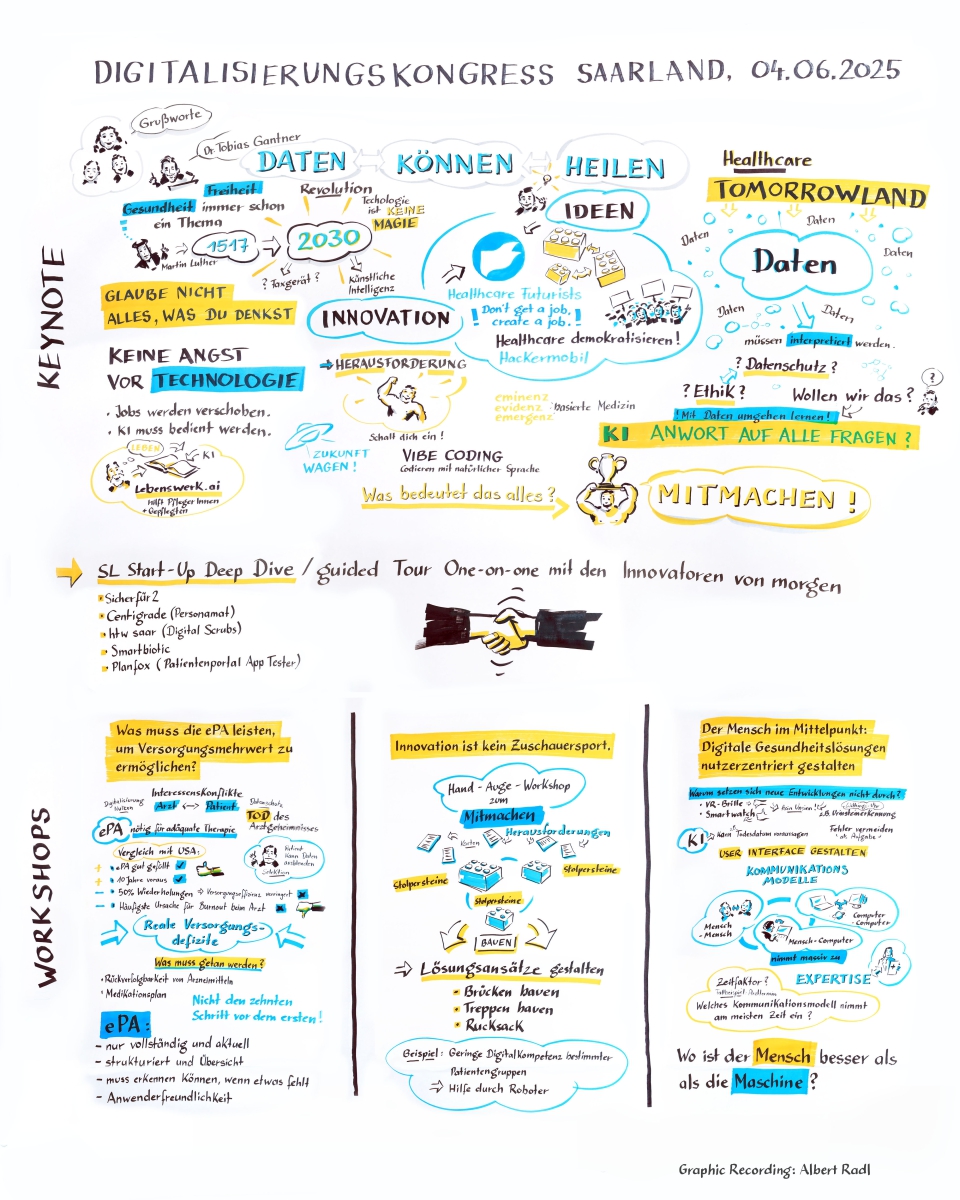 DIGITALISIERUNGSKONGRESS SAARLAND, 04.06.2025
KEYNOTE
Grußworte
Dr. Tobias Gantner
DATEN KÖNNEN HEILEN
Freiheit
Gesundheit immer schon
ein Thema
Martin Luther
1517
Revolution
2030
Techologie
ist KEINE
MAGIE
? Faxgerät?
Künstliche
Intelligenz
GLAUBE NICHT
ALLES, WAS DU DENKST
INNOVATION
IDEEN
Healthcare Futurists
! Don't get a job.
create a job. !
Healthcare demokratisieren!
Hackermobil
Healthcare
TOMORROWLAND
Daten
Daten
Daten
Daten
Daten
Daten
müssen interpretiert werden.
? Datenschutz?
? Ethik?
Wollen wir das?
?
! Mit Daten umgehen lernen!
KI ANWORT AUF ALLE FRAGEN?
KEINE ANGST
VOR TECHNOLOGIE
• Jobs werden verschoben.
• KI muss bedient werden.
LEBEN
KI
Lebenswerk.ai
hilft Pfleger:Innen
+ Gepflegten
HERAUSFORDERUNG
Schaff dich ein!
ZUKUNFT
WAGEN!
eminenz
evidenz basierte Medizin
emergenz
VIBE CODING
Codieren mit natürlicher Sprache
Was bedeutet das alles?
MITMACHEN!
SL Start-Up Deep Dive / guided Tour One-on-one mit den Innovatoren von morgen
Sicherfür2
Centigrade (Personamat)
htw saar (Digital Scrubs)
Smartbiotic
Planfox (Patientenportal App Tester)
WORKSHOPS
Was muss die ePA leisten,
um Versorgungsmehrwert zu
ermöglichen?
InteressensKonflikte
Digitalisierung
Nutzen
Arzt <-> Patient
Datenschutz
TOD des
Arztgeheimnisses
ePA nötig für adäquate Therapie
Vergleich mit USA:
+ ePA gut gefüllt
+ 10 Jahre voraus
- 50% Wiederholungen ⇒ Versorgungseffizienz verringert
- Häufigste Ursache für Burnout beim Arzt
Patient
kann Daten
ausblenden
Selektion
Reale Versorgungs-
defizite
Was muss getan werden?
• Rückverfolgbarkeit von Arzneimitteln
• Medikationsplan
Nicht den zehnten
Schritt vor dem ersten!
ePA:
- nur vollständig und aktuell
- strukturiert und Übersicht
- muss erkennen Können, wenn etwas fehlt
- Anwenderfreundlichkeit
Innovation ist kein Zuschauersport.
Hand - Auge - Workshop
zum
Mitmachen
Karten
Herausforderungen
Stolpersteine
Stolpersteine
Stolpersteine
BAUEN
⇒ Lösungsansätze gestalten
• Brücken bauen
• Treppen bauen
• Rucksack
Beispiel: Geringe DigitalKompetenz bestimmter
Patientengruppen
⇒ Hilfe durch Roboter
Der Mensch im Mittelpunkt:
Digitale Gesundheitslösungen
nutzerzentriert gestalten
Warum setzen sich neue Entwicklungen nicht durch?
• VR-Brille
• Smartwatch
z.B. Vorhofflimmererkennung
KI
Kann Todesdatum vorhersagen
Fehler vermeiden
als Aufgabe
USER INTERFACE GESTALTEN
KOMMUNIKATIONS
MODELLE
Mensch
- Mensch
Computer
- Computer
Mensch-Computer
nimmt massiv zu
EXPERTISE
Zeitfaktor?
Welches Kommunikationsmodell nimmt
am meisten Zeit ein?
Wo ist der Mensch besser als
als die Maschine?
Graphic Recording: Albert Radl